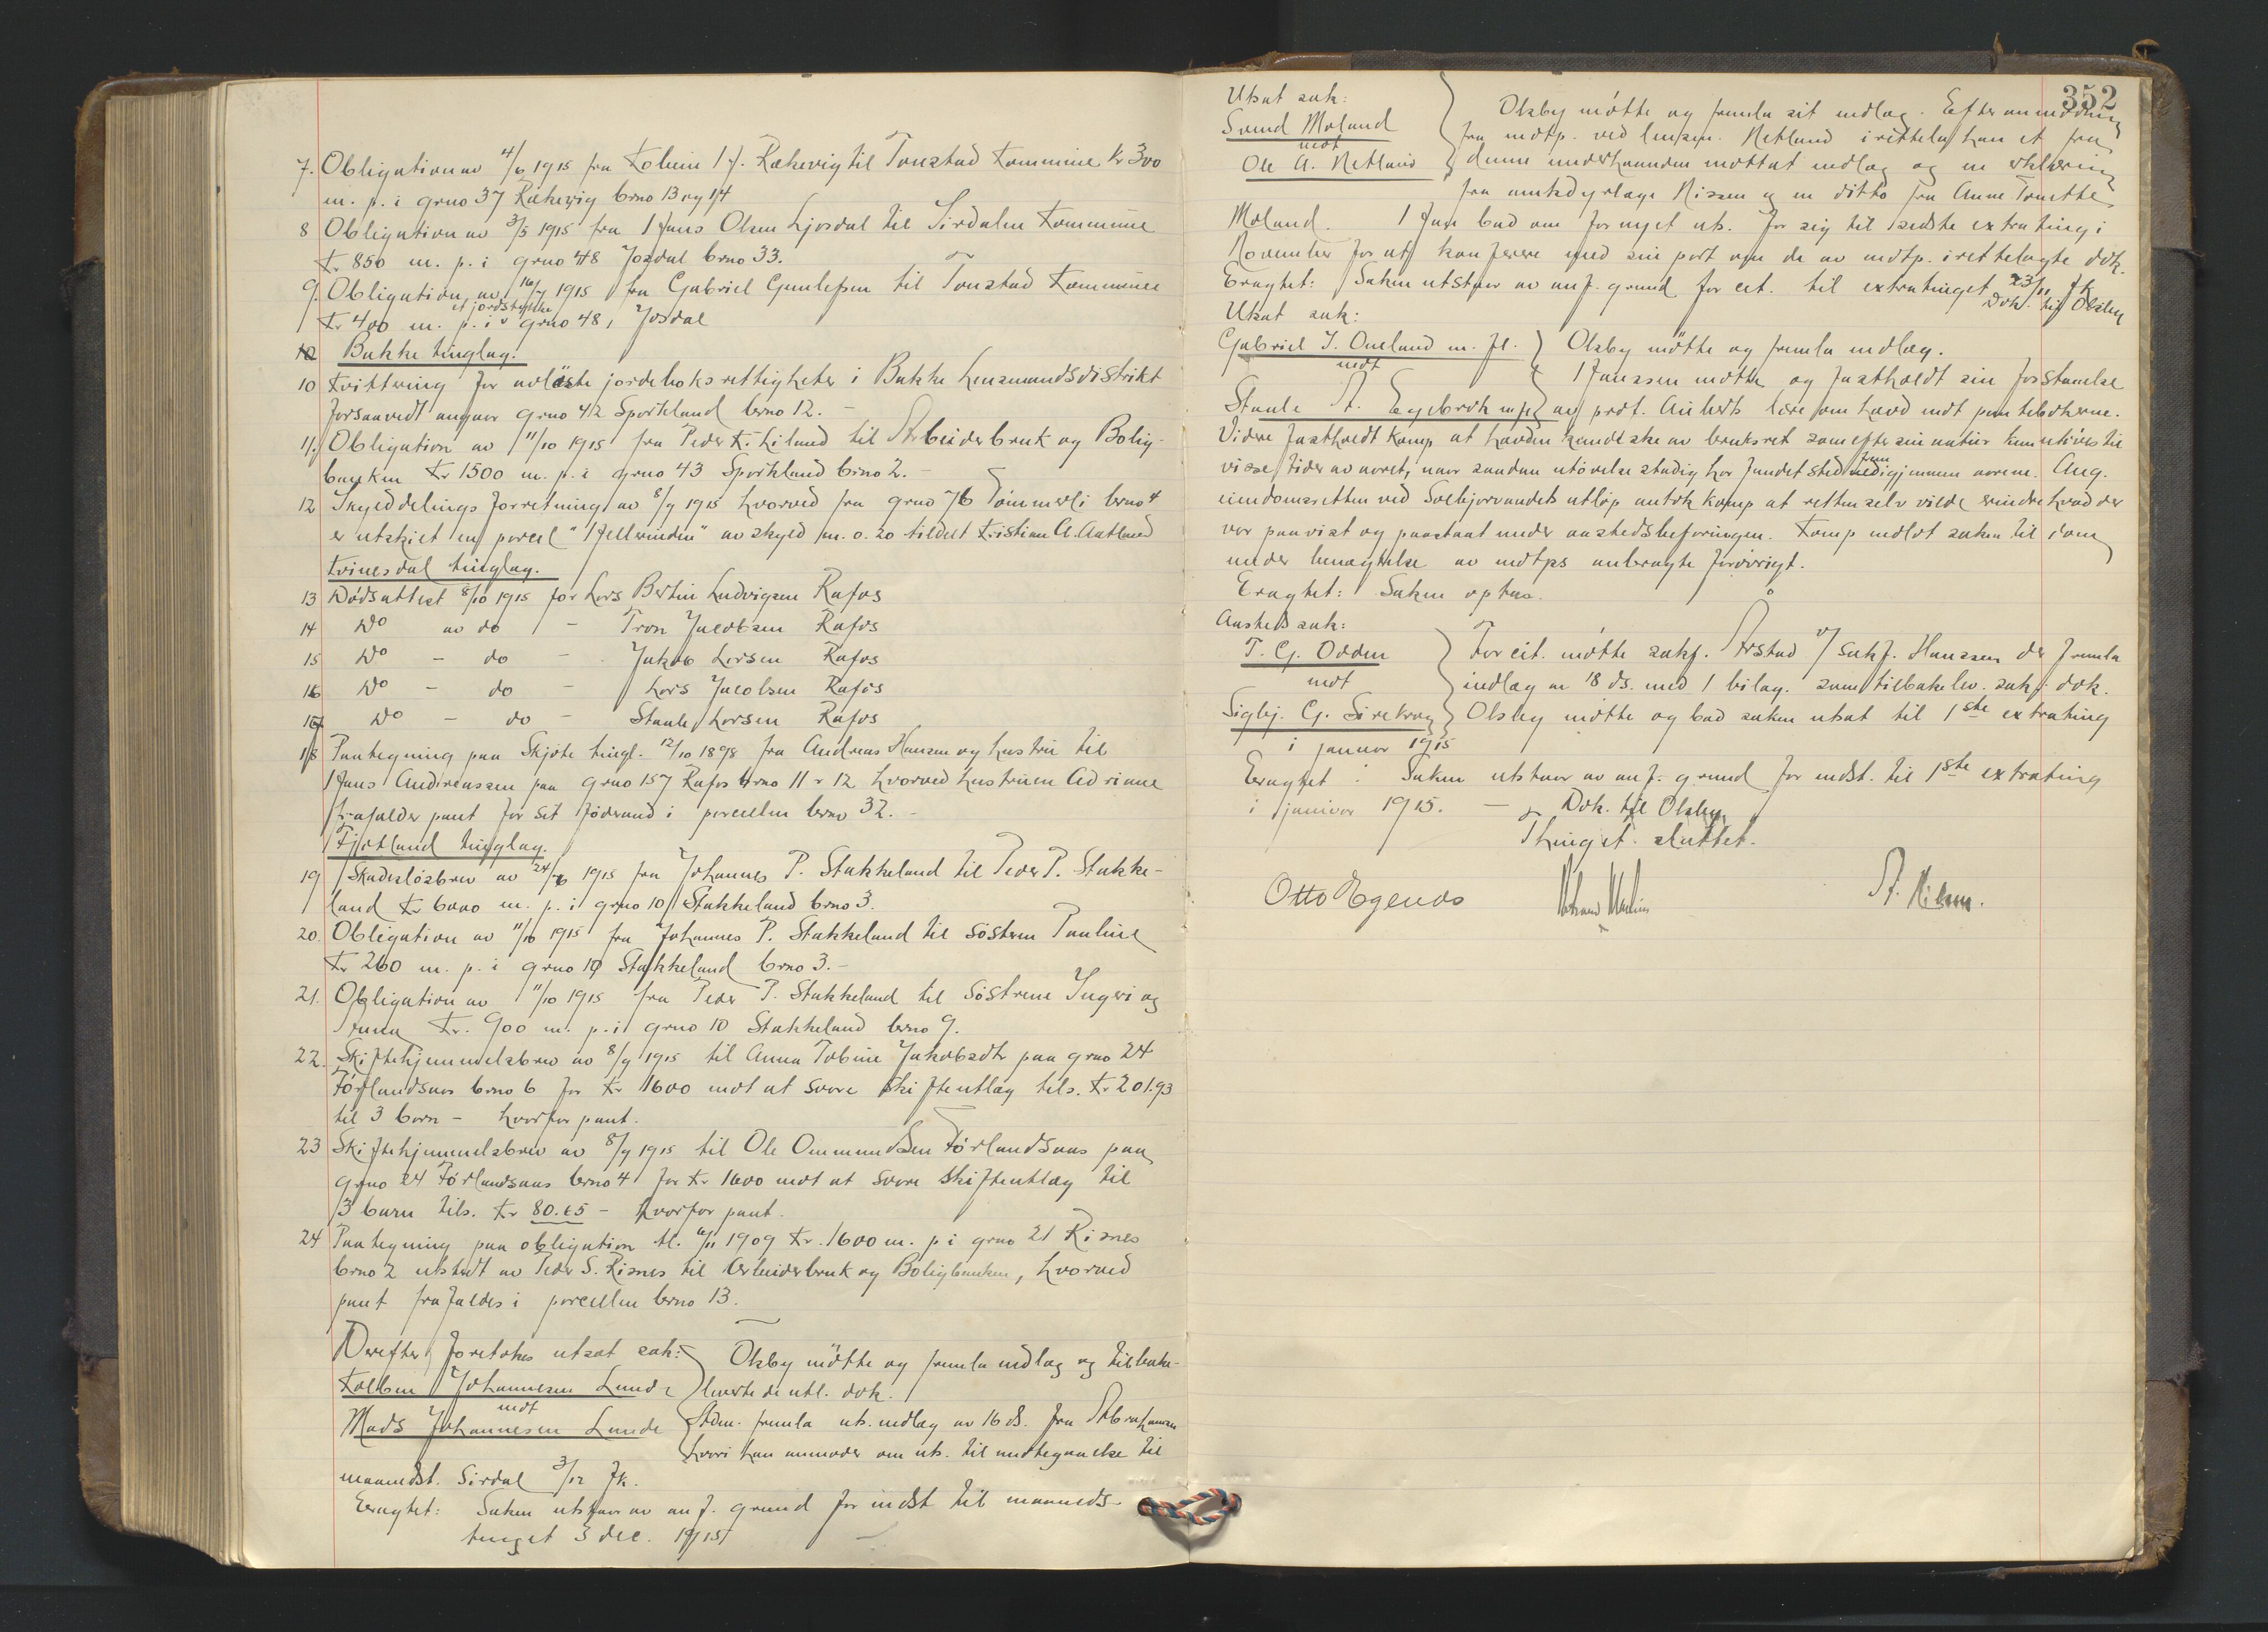 7. Obligation av 4/6 1915 fra Tollein H. Rækevig til Tonstad Kommune Kr 300
m. p. i grno 37 Rækevig brno 13 og 14
8 Obligation av 3/5 1915 fra Hans Olsen Ljosdal til Sirdalen Kommune
Kr 850 m. p. i grno 48 Josdal brno 33.
9. Obligation av 16/7 1915 fra Gabriel Gunlefsen til Tonstad Kommune
et jordstykke
Kr 400 m. p. i grno 48, Josdal
Bakke tinglag.
10 Kvittering for avløste jordeboksrettigheter i Bakke Lensmandsdistrikt
forsaavidt angaar grno 42 Sporkland brno 12. -
11. Obligation av 11/10 1915 fra Peder K. Liland til Arbeiderbruk og Bolig-
banken Kr 1500 m. p. i grno 43 Sporkland brno 2. -
12 Skylddelingsforretning av 8/9 1915 hvorved fra grno 76 Tømmerli brno 4
er utskiet en parcel "Hellerindin" av skyld m. 0.20 tildelt Kristian A. Aatland
Kvinesdal tinglag.
13 Dødsattest 8/10 1915 for Lars Bertin Ludvigsen Rafos
14 Do av do - Tron Jacobsen Rafos
15 Do - do - Jakob Larsen Rafos
16 Do - do - Lars Jacobsen Rafos
17 Do - do - Staale Larsen Rafos
18 Paategning paa Skjøte tingl. 12/10 1898 fra Andreas Hansen og hustru til
Hans Andreassen paa grno 157 Rafos brno 11 & 12 hvorved hustruen Adriane
frafalder pant for sit føderaad i parcellen brno 32. -
Fjotland tinglag.
19 Skadesløsbrev av 24/6 1915 fra Johannes P. Stakkeland til Peder P. Stakke-
land Kr 6000 m. p. i grno 10 Stakkeland brno 3.
20. Obligation av 11/10 1915 fra Johannes P. Stakkeland til søsteren Pauline
Kr 260 m. p. i grno 10 Stakkeland brno 3. -
21. Obligation av 11/10 1915 fra Peder P. Stakkeland til søstrene Ingeri og
Anna Kr. 900 m. p. i grno 10 Stakkeland brno 9.
22. Skiftehjemmelsbrev av 8/9 1915 til Anna Tobine Jakobsdtr paa grno 24
Førlandsaas brno 6 for Kr 1600 mot at svare skifteutlæg tils. Kr 201.93
til 3 barn - hvorfor pant.
23 Skiftehjemmelsbrev av 8/9 1915 til Ole Ommundsen Førlandsaas paa
grno 24 Førlandsaas brno 4 for Kr 1600 mot at svare skifteutlæg til
3 barn tils. Kr 80.65 - hvorfor pant.
24 Paategning paa obligation tl. 11/11 1909 Kr. 1600 m. p i grno 21 Risnes
brno 2 utstedt av Peder S. Risnes til Arbeiderbruk og Boligbanken, hvorved
pant frafaldes i parcellen brno 13.
Derefter foretokes utsat sak:
Tolben Johannesen Lunde
mot
Mads Johannesen Lunde
Olsby møtte og fremla indlæg og tilbake-
leverte de utl. dok.
Adm. fremla uts. indlæg av 16 ds. fra Abrahamsen
hvori han anmoder om uts. til imøtegaaelse til
maanedst. Sirdal 3/12 fk.
Eragtet: Saken utstaar av anf. grund for indst til maaneds-
tinget 3 dec. 1915
352
Utsat sak:
Svend Moland
mot
Ole A. Netland
Olsby møtte og fremla sit indlæg. Efter anmodning
fra motp. ved lensm. Netland irettela han et fra
denne underhaanden mottat indlæg og en erklæring
fra amtsdyrlæge Nissen og en ditto fra Anne Tomette
Moland. Han bad om fornyet uts. for sig til sidste extrating i
November for at konferere med sin part om de av motp. irettelagte dok.
Eragtet: Saken utstaar av anf. grund for cit. til extratinget 23/11 fk
Dok. til Olsby
Utsat sak:
Gabriel I. Omland m. fl.
mot
Staale A. Egebrok m fl
Olsby møtte og fremla indlæg.
Hanssen møtte og fastholdt sin forstaaelse
av prof. Auberts lære om hævd mot pantebøkerne.
Videre fastholdt komp. at hævden kand ske av bruksret som efter sin natur kun utøves til
visse tider av aaret, naar saadan utøvelse stadig har fundet sted frem igjennem aarene. Ang.
eiendomsretten ved Solhjorvandets utløp antok komp at retten selv vilde erindre hvad der
var paavist og paastaat under aastedsbefaringen. Komp indlot saken til dom
under benegtelse av motps anbragte forøvrigt.
Eragtet: Saken optas.
Aasteds sak:
T. G. Odden
mot
Sigbj. G. Sirekrog
For cit. møtte sakf. Årstad v/ sakf. Hanssen der fremla
indlæg av 18 ds. med 1 bilag. samt tilbakelev. sakf. dok.
Olsby møtte og bad saken utsat til 1ste extrating
i januar 1915
Eragtet: Saken utstaar av anf. grund for indst. til 1ste extrating
i januar 1915. - Dok. til Olsby
Thinget sluttet.
Otto Egenes
A. Nilsen.